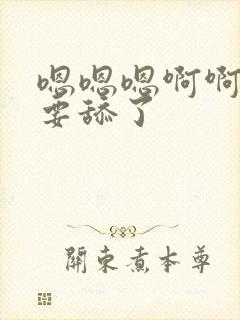 嗯嗯嗯啊啊
要舔了
關東煮本尊